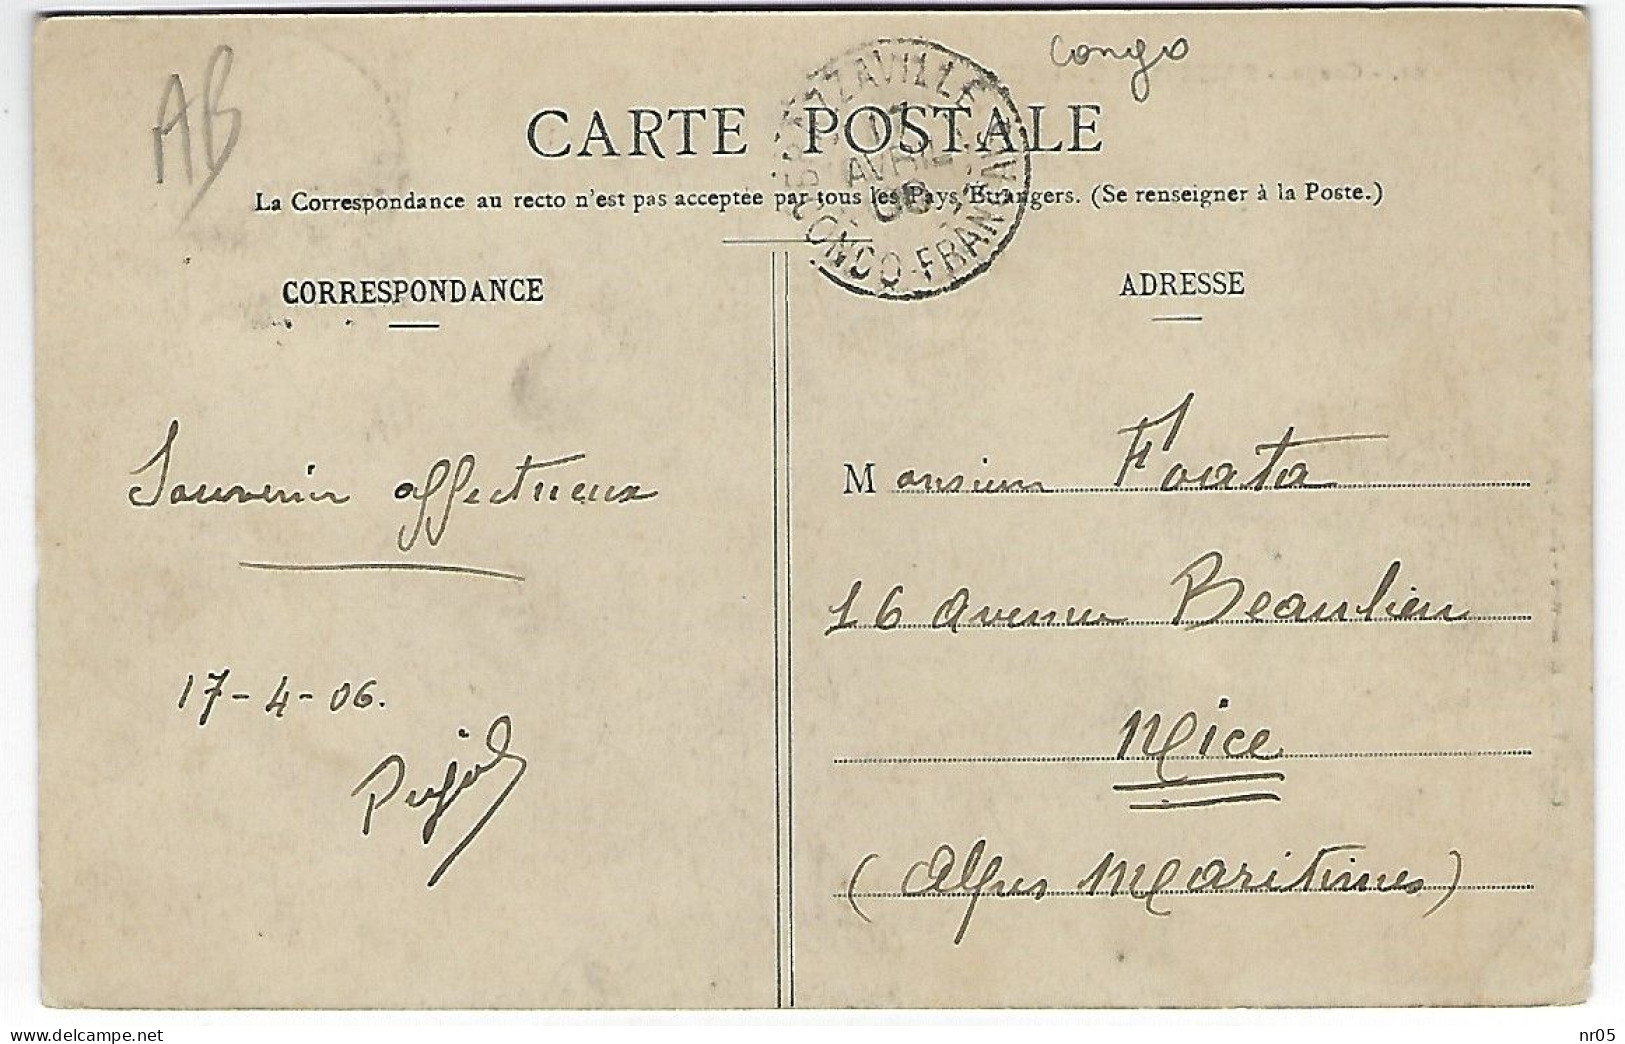 AB
Congo
CARTE POSTALE
BRAZZAVILLE
17
AVRIL
06
CONGO-FRANÇAIS
La Correspondance au recto n'est pas acceptée par tous les Pays Étrangers. (Se renseigner à la Poste.)
CORRESPONDANCE
ADRESSE
Souvenir affectueux
17-4-06.
Pujol
Monsieur Foata
16 avenue Beaulieu
Nice
(Alpes Maritimes)
www.delcampe.net
nr05